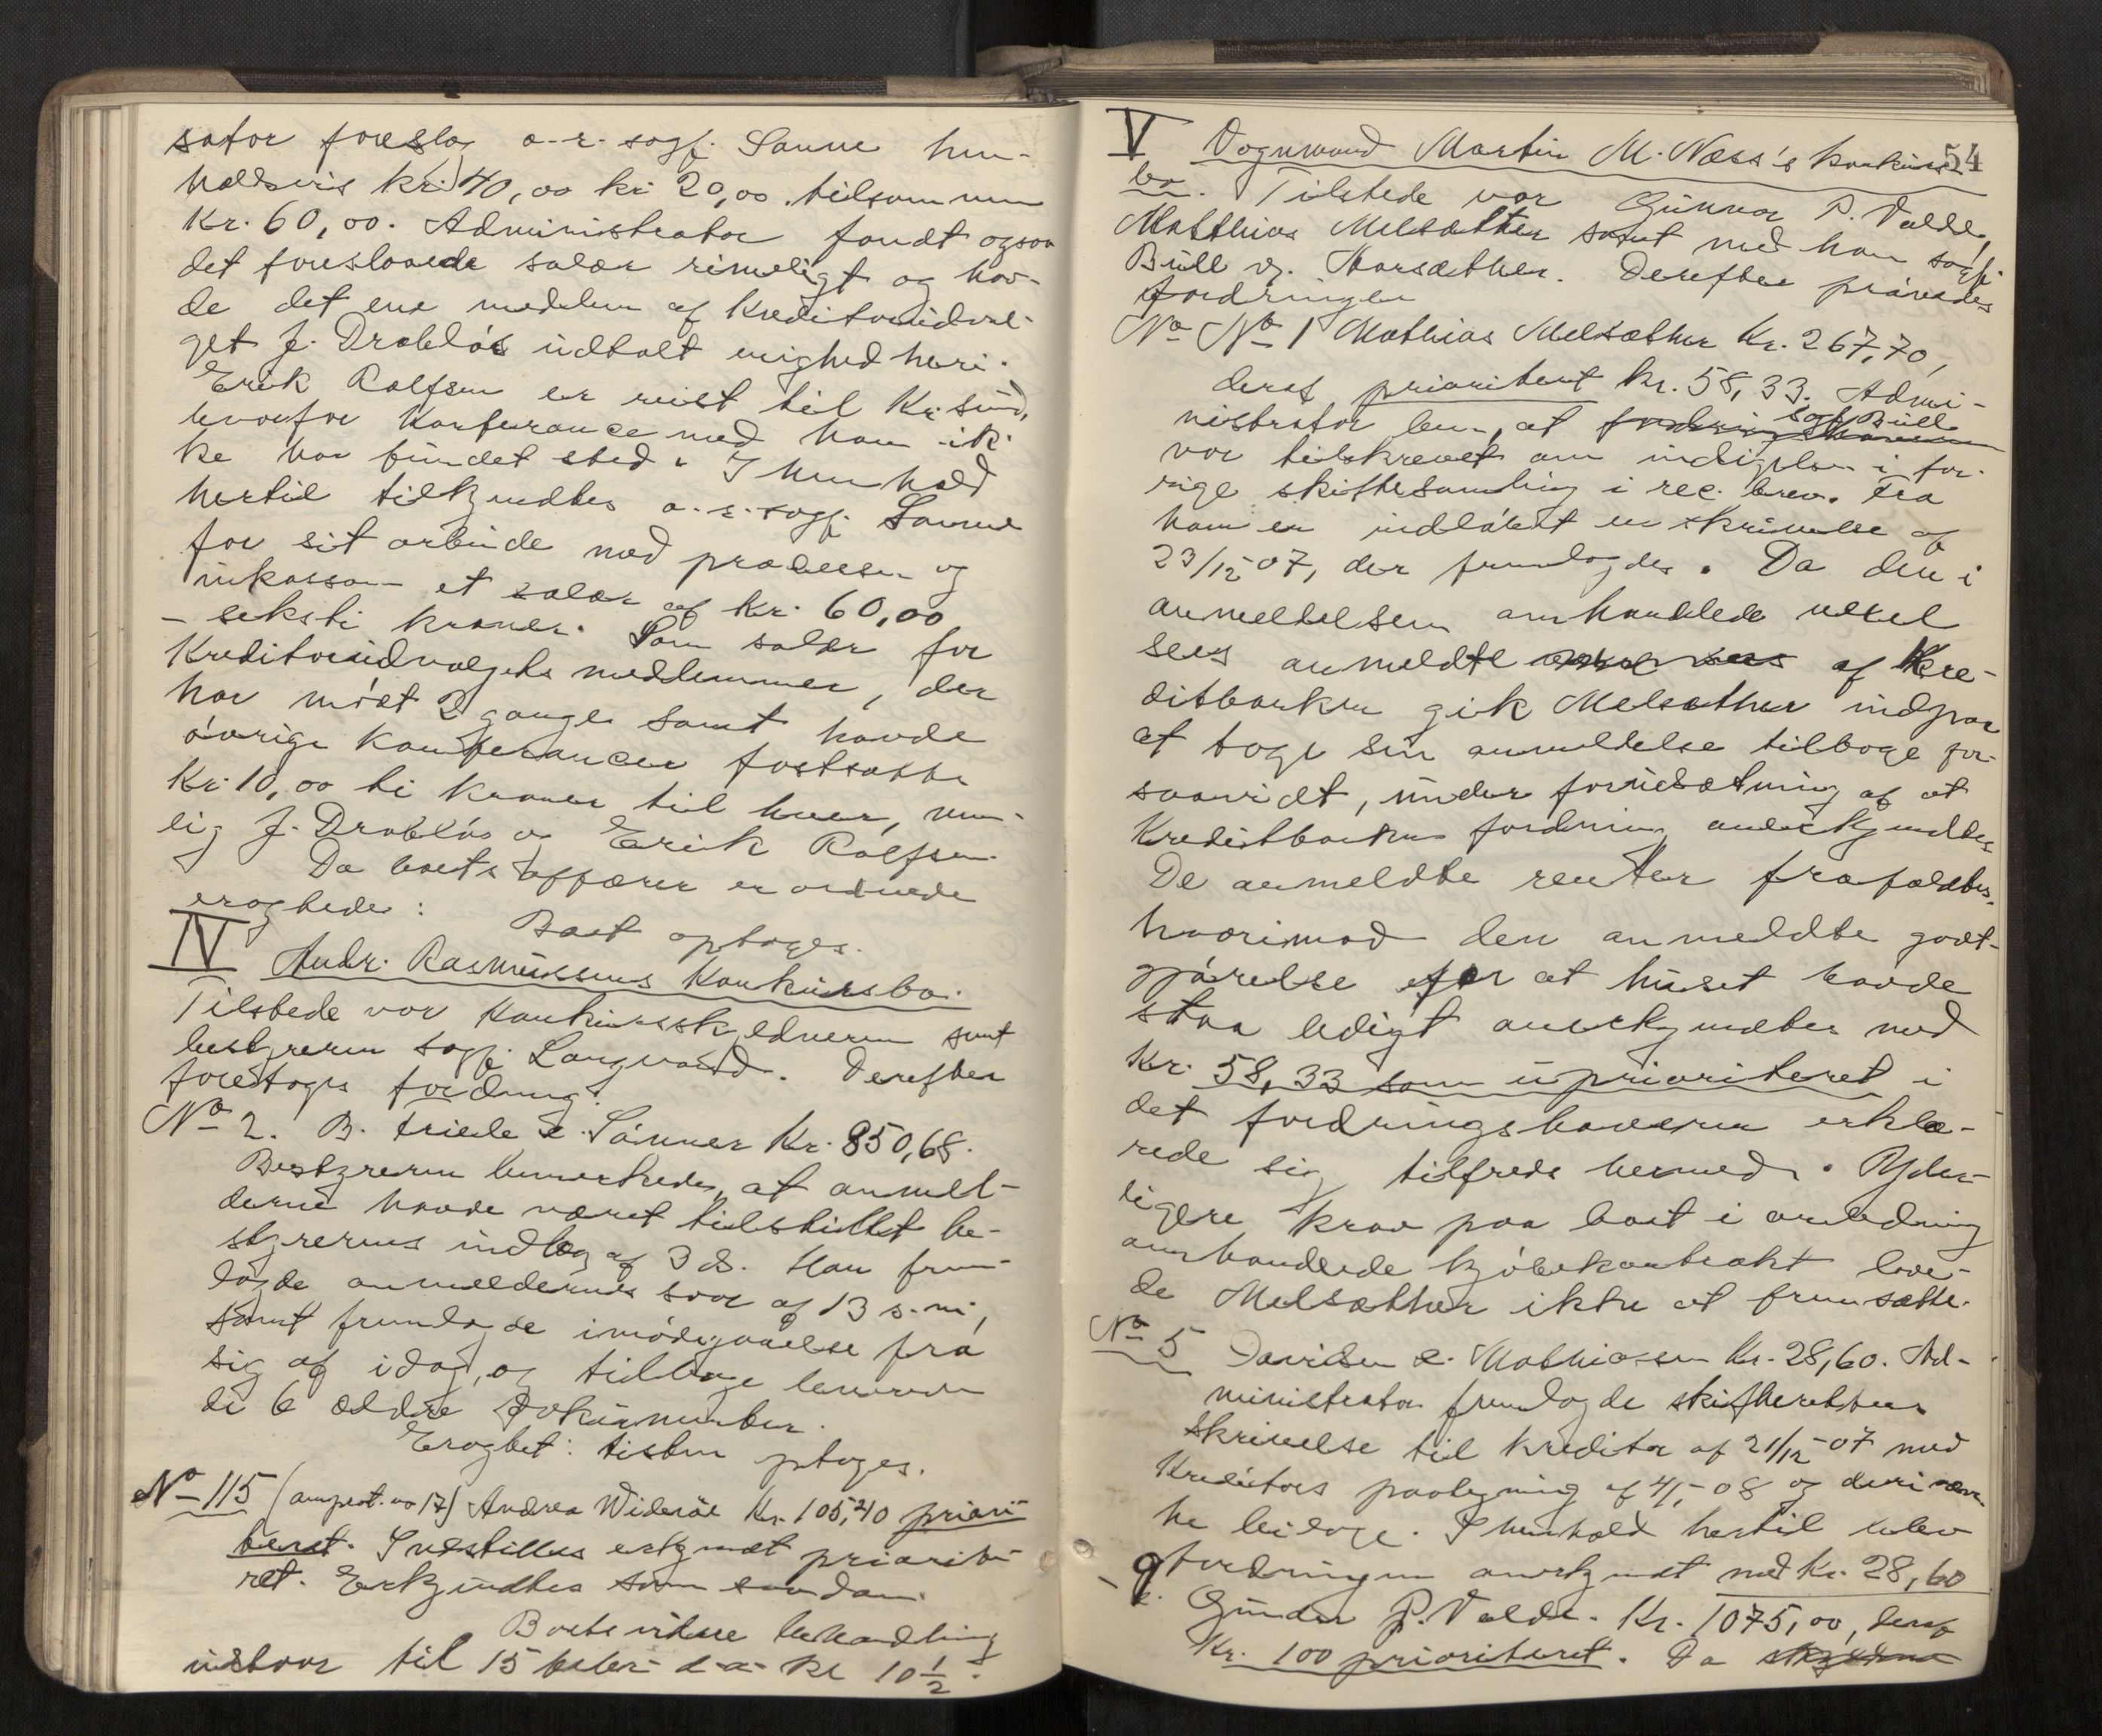 sator foreslog o.r.sagf. Sanne hen-
holdsvis kr. 40,00 kr 20,00. tilsammen
Kr. 60,00. Administrator fandt ogsaa
det foreslaaede salær rimeligt og hav-
de det ene medlem af kreditorudval-
get J. Drabløs udtalt enighed heri.
Erik Rolfsen er reist til Kr.sund,
hvorfor konferance med ham ik-
ke har fundet sted. I henhold
hertil tilkjendtes o.r.sagf. Sanne
for sit arbeide med processen og
inkasson et salær af kr. 60,00
- seksti kroner. Som salær for
Kreditorudvalgets medlemmer, der
har mødt 2 gange samt havde
øvrige konferancer fastsattes
Kr. 10,00 ti kroner til hver, nem-
lig J. Drabløs og Erik Rolfsen.
Da boets affærer er ordnede
eragtedes:
Boet optages.
IV Andr. Rasmussens Konkursbo.
Tilstede var konkursskyldneren samt
bestyreren sagf. Langvand. Derefter
foretoges fordring:
No 2. B. Friele & Sønner Kr. 850,68.
Bestyreren bemærkede, at anmel-
derne havde været tilstillet be-
styrerens indlæg af 3 ds. Han frem-
lagde anmeldernes svar af 13 s.m.,
samt fremlagde imødegaaelse fra
sig af idag, og tilbage leverede
de 6 ældre dokumenter.
Eragtet: tisten optages.
No 115 Andrea Widerøe Kr. 105,40 priori-
teret. Indstilles erkjendt priorite-
ret. Erkjendtes som saadan.
Boets videre behandling
udstaar til 15 febr. d.a. kl 10 1/2.
54
V Vognmand Martin M. Næss's konkurs-
bo. Tilstede var Gunnar P. Valde,
Matthias Melsæther samt med ham sagf.
Bull og Horsæther. Derefter prøvedes
fordringer
No No 1 Mathias Melsæther Kr. 267,70,
deraf prioritert kr. 58,33. Admi-
nistrator bem., at sagf. Bull
var tilskrevet om indsigelsen i for-
rige skiftesamling i rec. brev. Fra
ham er indløbet en skrivelse af
23/12 07, der fremlagdes. Da den i
anmeldelsen omhandlede veksel
sees anmeldt af Kre-
ditbanken gik Melsæther ind paa
at tage sin anmeldelse tilbage for-
saavidt, under forudsætning af at
Kreditbankens fordring anerkjendtes.
De anmeldte renter frafaldtes,
hvorimod den anmeldte godt-
gjørelse for at huset havde
staa ledigt anerkjendtes med
Kr. 58,33 som uprioriteret i
det fordringshaveren erklæ-
rede sig tilfreds hermed. Yder-
ligere krav paa boet i anledning
omhandlede kjøbekontrakt love-
de Melsæther ikke at fremsætte.
No 5 Davidsen & Mathiasen Kr. 28,60. Ad-
ministrator fremlagde skifterettens
skrivelse til kreditor af 21/12 07 med
Kreditors paategning af 4/1 - 08 og deri nævn-
te bilage. I henhold hertil blev
fordringen anerkjendt med Kr. 28,60
- 9. Gunnar P. Valde. Kr. 1075,00, deraf
Kr. 100 prioriteret. Da